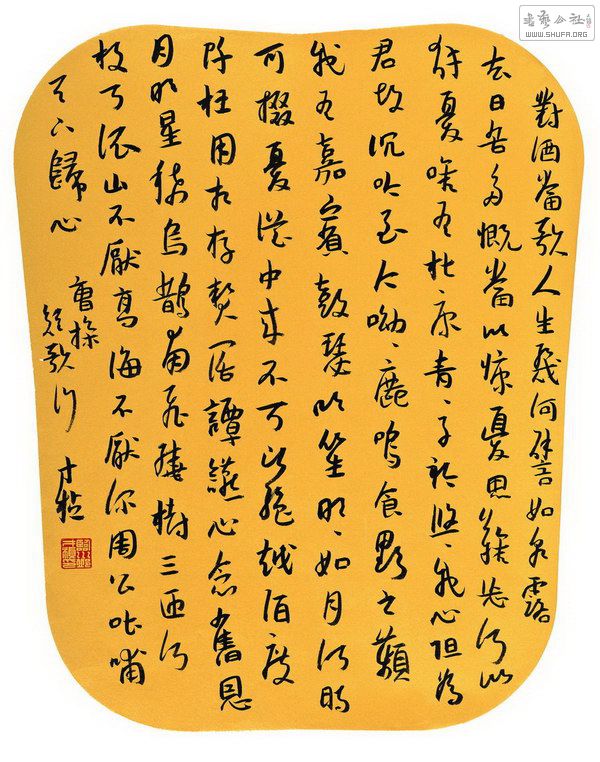 對酒當歌人生幾何譬如朝露
去日苦多慨當以慷憂思難忘何以
解憂唯有杜康青〻子衿悠〻我心但為
君故沉吟至今呦〻鹿鳴食野之蘋
我有嘉賓鼓瑟吹笙明〻如月何時
可掇憂從中來不可斷絕越陌度
阡枉用相存契闊譚讌心念舊恩
月明星稀烏鵲南飛繞樹三匝何
枝可依山不厭高海不厭深周公吐哺
天下歸心
曹操
短歌行
書藝公社
WWW.SHUFA.ORG